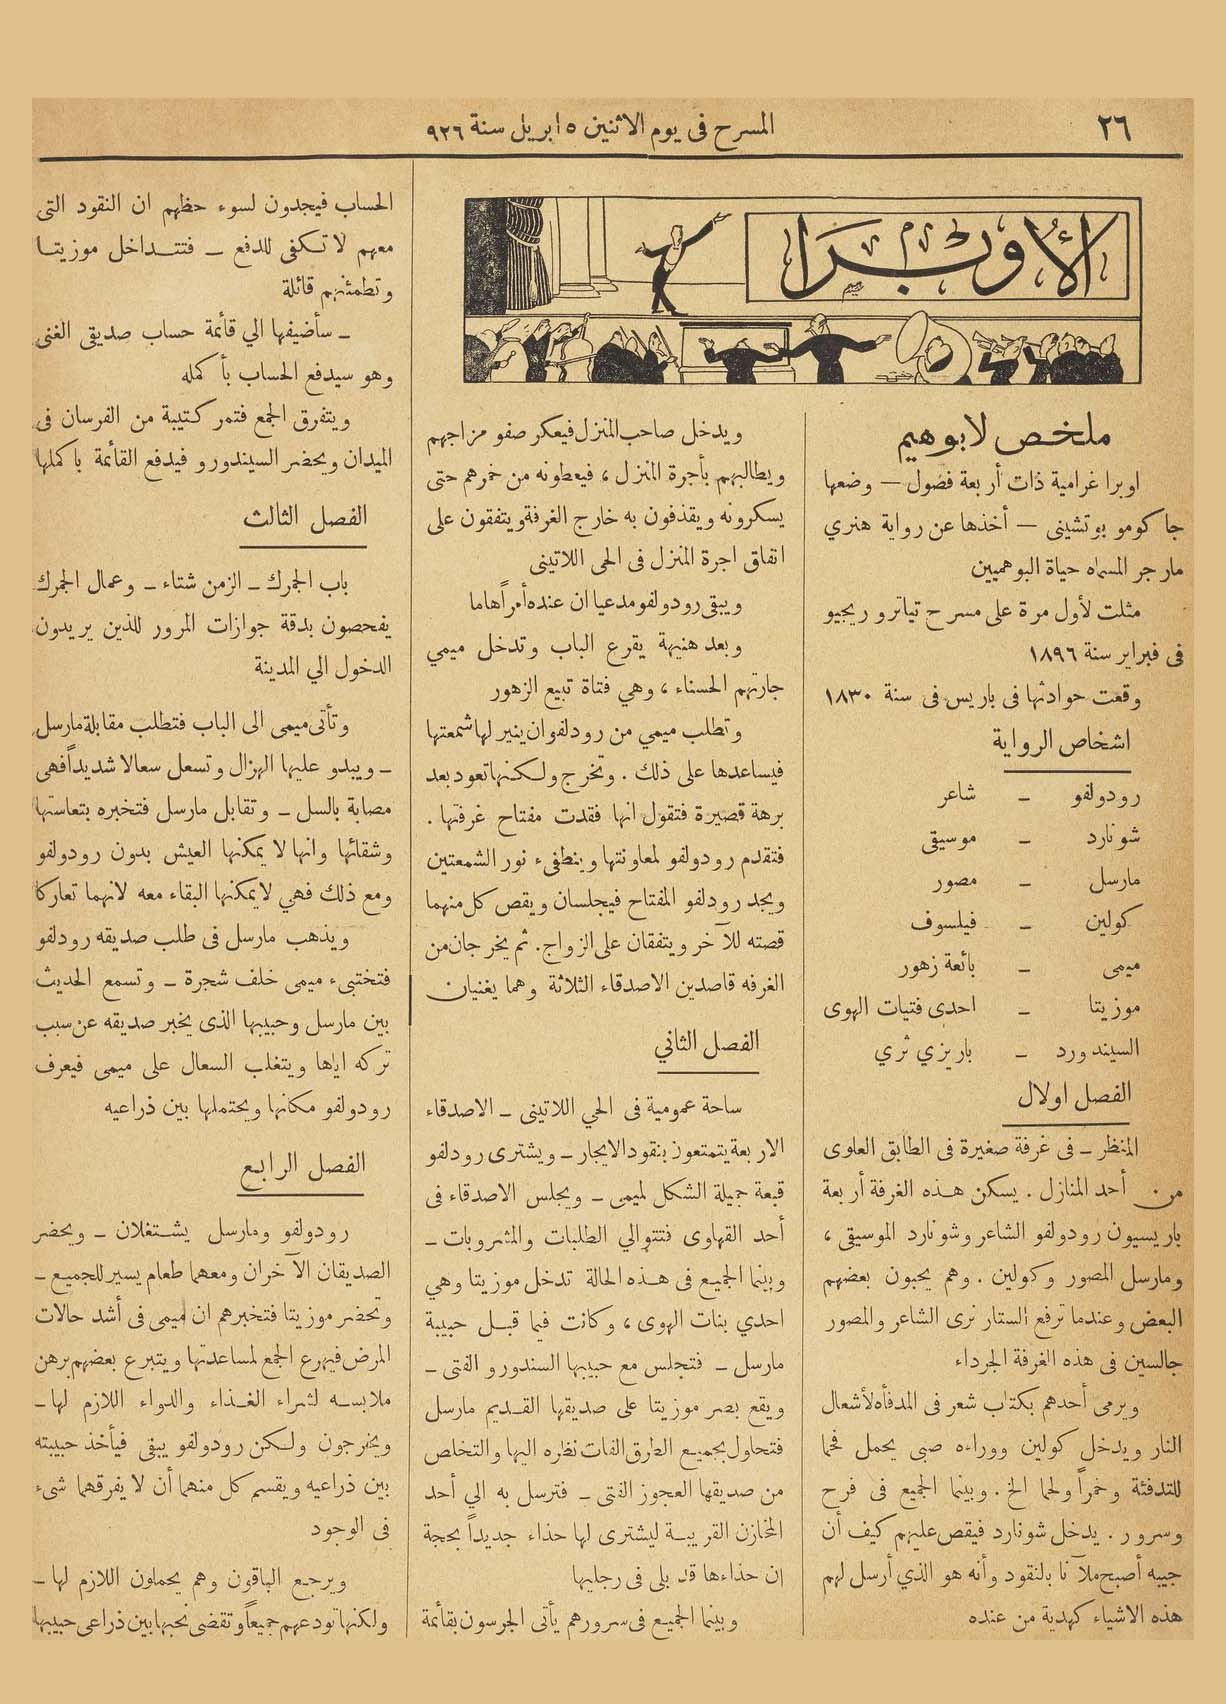 ٢٦
المسرح فى يوم الاثنين ٥ ابريل سنة ٩٢٦
الأوبرا
ملخص لابوهيم
اوبرا غرامية ذات أربعة فصول — وضعها
جاكومو بوتشينى — أخذها عن رواية هنري
مارجر المسماه حياة البوهميين
مثلت لأول مرة على مسرح تياترو ريجيو
فى فبراير سنة ١٨٩٦
وقعت حوادثها فى باريس فى سنة ١٨٣٠
اشخاص الرواية
رودولفو – شاعر
شونارد – موسيقى
مارسل – مصور
كولين – فيلسوف
ميمى – بائعة زهور
موزيتا – احدى فتيات الهوى
السيندورد – باريزي ثري
الفصل اولال
المنظر – فى غرفة صغيرة فى الطابق العلوى
من أحد المنازل . يسكن هذه الغرفة أربعة
باريسيون رودولفو الشاعر وشونارد الموسيقى ،
ومارسل المصور وكولين . وهم يحبون بعضهم
البعض وعندما ترفع الستار نرى الشاعر والمصور
جالسين فى هذه الغرفة الجرداء
ويرمى أحدهم بكتاب شعر فى المدفأه لأشعال
النار ويدخل كولين ووراءه صبى يحمل فحما
للتدفئة وخمراً ولحما الخ . وبينما الجميع فى فرح
وسرور . يدخل شونارد فيقص عليهم كيف أن
جيبه أصبح ملآنا بالنقود وأنه هو الذي أرسل لهم
هذه الاشياء كهدية من عنده
ويدخل صاحب المنزل فيعكر صفو مزاجهم
ويطالبهم بأجرة المنزل ، فيعطونه من خمرهم حتى
يسكرونه ويقذفون به خارج الغرفة ويتفقون على
اتفاق اجرة المنزل فى الحى اللاتينى
ويبقى رودولفو مدعيا ان عنده أمراً هاما
وبعد هنيهة يقرع الباب وتدخل ميمي
جارتهم الحسناء ، وهي فتاة تبيع الزهور
وتطلب ميمي من رودلفو ان ينير لها شمعتها
فيساعدها على ذلك . وتخرج ولكنها تعود بعد
برهة قصيرة فتقول انها فقدت مفتاح غرفتها .
فتقدم رودولفو لمعاونتها وينطفىء نور الشمعتين
ويجد رودلفو المفتاح فيجلسان ويقص كل منهما
قصته للآخر ويتفقان على الزواج. ثم يخرجان من
الغرفه قاصدين الاصدقاء الثلاثة وهما يغنيان
الفصل الثاني
ساحة عمومية فى الحي اللاتينى – الاصدقاء
الاربعة يتمتعون بنقود الايجار – ويشترى رودلفو
قبعة جميلة الشكل لميمى – ويجلس الاصدقاء فى
أحد القهاوى فتتوالي الطلبات والمشروبات –
وبينما الجميع فى هذه الحالة تدخل موزيتا وهي
احدي بنات الهوى ، وكانت فيما قبل حبيبة
مارسل – فتجلس مع حبيبها السندورو الفتى –
ويقع بصر موزيتا على صديقها القديم مارسل
فتحاول بجميع الطرق الفات نظره اليها والتخلص
من صديقها العجوز الفتى – فترسل به الي أحد
المخازن القريبة ليشترى لها حذاء جديداً بحجة
إن حذاءها قد بلى فى رجليها
وبينما الجميع فى سرورهم يأتى الجرسون بقائمة
الحساب فيجدون لسوء حظهم ان النقود التى
معهم لا تكفى للدفع – فتتداخل موزيتا
وتطمئنهم قائلة
– سأضيفها الي قأئمة حساب صديقى الغنى
وهو سيدفع الحساب بأكمله
ويتفرق الجمع فتمر كتيبة من الفرسان فى
الميدان ويحضر السيندورو فيدفع القائمة باكملها
الفصل الثالث
باب الجمرك – الزمن شتاء – وعمال الجمرك
يفحصون بدقة جوازات المرور للذين يريدون
الدخول الي المدينة
وتأتى ميمى الى الباب فتطلب مقابلة مارسل
– ويبدو عليها الهزال وتسعل سعالا شديداً فهى
مصابة بالسل – وتقابل مارسل فتخبره بتعاستها
وشقائها وانها لا يمكنها العيش بدون رودولفو
ومع ذلك فهي لا يمكنها البقاء معه لانهما تعاركا
ويذهب مارسل فى طلب صديقه رودلفو
فتختبىء ميمى خلف شجرة – وتسمع الحديث
بين مارسل وحبيبها الذى يخبر صديقه عن سبب
تركه اياها ويتغلب السعال على ميمى فيعرف
رودولفو مكانها ويحتملها بين ذراعيه
الفصل الرابع
رودولفو ومارسل يشتغلان – ويحضر
الصديقان الآخران ومعهما طعام يسير للجميع –
وتحضر موزيتا فتخبرهم ان ميمى فى أشد حالات
المرض فيهرع الجمع لمساعدتها ويتبرع بعضهم برهن
ملابسه لشراء الغذاء والدواء اللازم لها –
ويخرجون ولكن رودولفو يبقى فيأخذ حبيبته
بين ذراعيه ويقسم كل منهما أن لا يفرقهما شىء
فى الوجود
ويرجع الباقون وهم يحملون اللازم لها –
ولكنها تودعهم جميعاً وتقضى نحبها بين ذراعى حبيبها